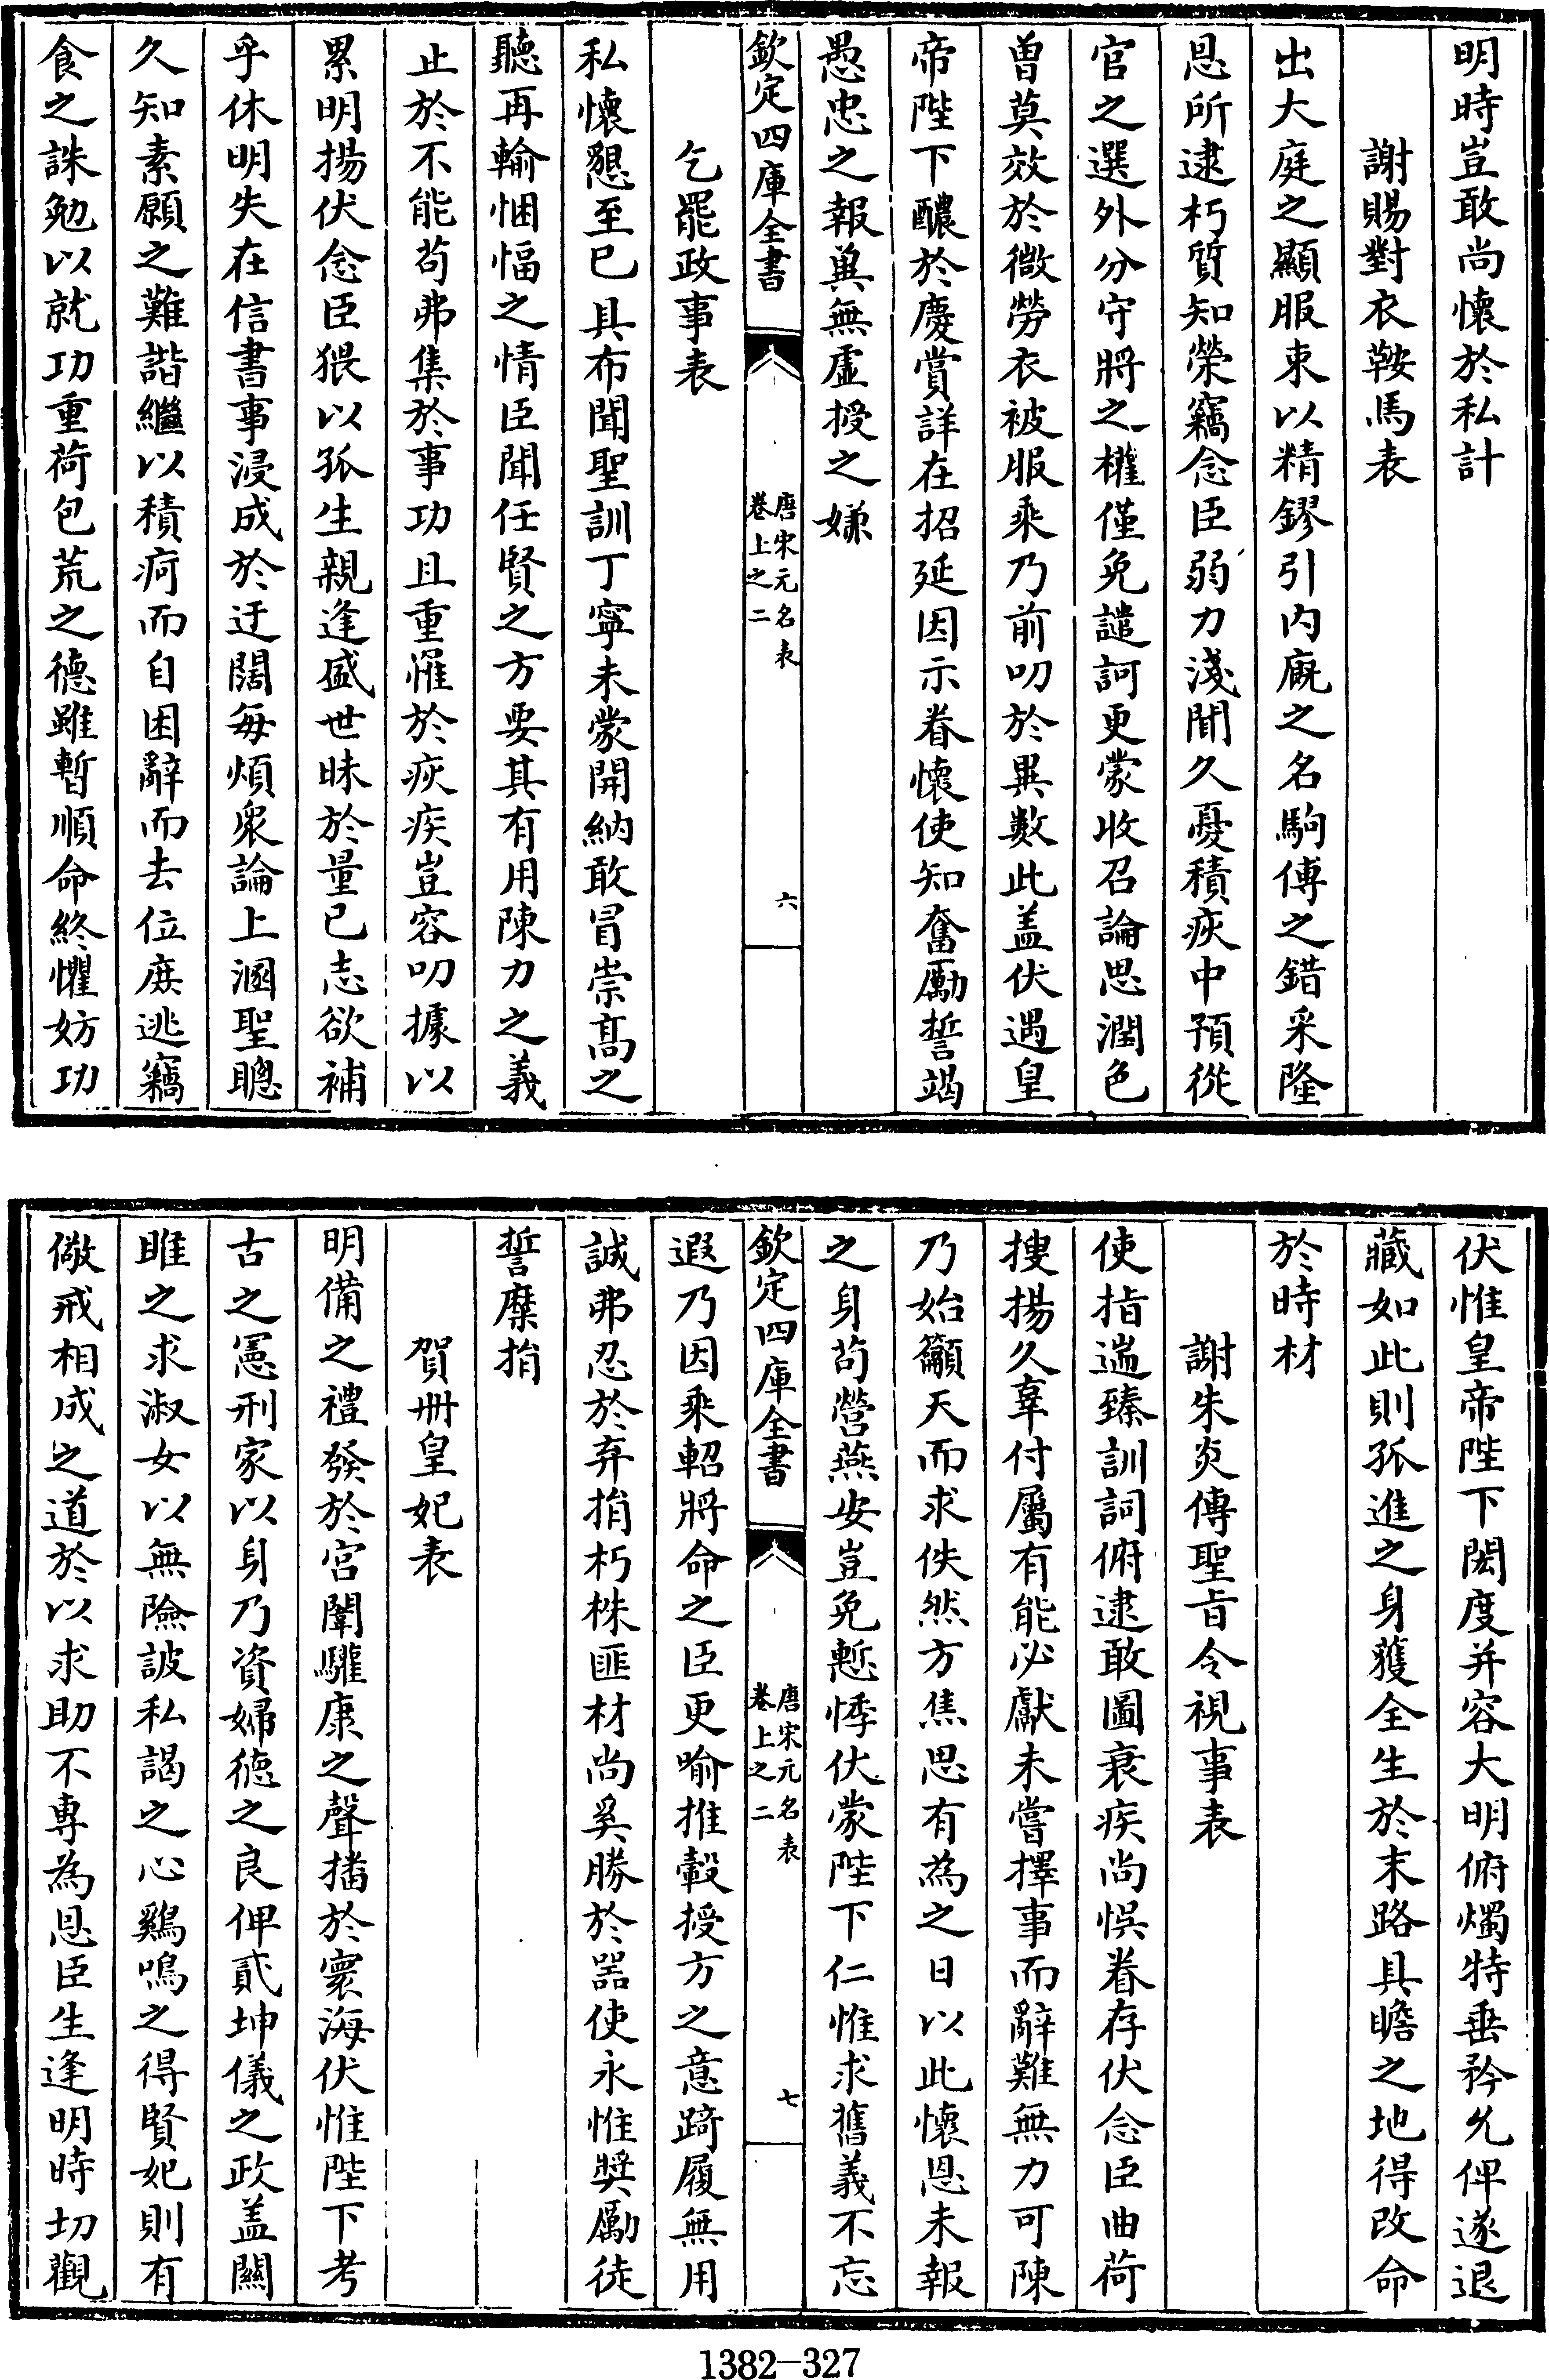 明時豈敢尚懷於私計
謝賜對衣鞍馬表
出大庭之顯服束以精鏐引内廐之名駒傅之錯采隆
恩所逮朽質知榮竊念臣弱力淺聞久憂積疢中預從
官之選外分守將之權僅免譴訶更蒙收召論思潤色
曽莫效於微勞衣被服乘乃前叨於異數此盖伏遇皇
帝陛下醲於慶賞詳在招延因示眷懷使知奮勵誓竭
愚忠之報兾無虛授之嫌
欽定四庫全書
唐宋元名表
卷上之二
六
乞罷政事表
私懷懇至已具布聞聖訓丁寧未蒙開納敢冒崇髙之
聽再輸悃愊之情臣聞任賢之方要其有用陳力之義
止於不能苟弗集於事功且重罹於疢疾豈容叨據以
累明揚伏念臣猥以孤生親逢盛世昧於量己志欲補
乎休明失在信書事浸成於迂闊每煩衆論上溷聖聰
久知素願之難諧繼以積疴而自困辭而去位庻逃竊
食之誅勉以就功重荷包荒之德雖暫順命終懼妨功
伏惟皇帝陛下閎度并容大明俯燭特垂矜允俾遂退
藏如此則孤進之身獲全生於末路具瞻之地得改命
於時材
謝朱炎傳聖旨令視事表
使指遄臻訓詞俯逮敢圖衰疾尚悞眷存伏念臣曲荷
搜揚久辜付屬有能必獻未嘗擇事而辭難無力可陳
乃始籲天而求佚然方焦思有為之日以此懷恩未報
之身茍營燕安豈免慙悸伏蒙陛下仁惟求舊義不忘
欽定四庫全書
唐宋元名表
卷上之二
七
遐乃因乘軺將命之臣更喻推轂授方之意踦履無用
誠弗忍於弃捐朽株匪材尚奚勝於器使永惟奬勵徒
誓糜捐
賀冊皇妃表
明備之禮發於宫闈驩康之聲播於寰海伏惟陛下考
古之憲刑家以身乃資婦德之良俾貳坤儀之政盖闗
雎之求淑女以無險詖私謁之心鷄鳴之得賢妃則有
儆戒相成之道於以求助不專為恩臣生逢明時切觀
1382-327